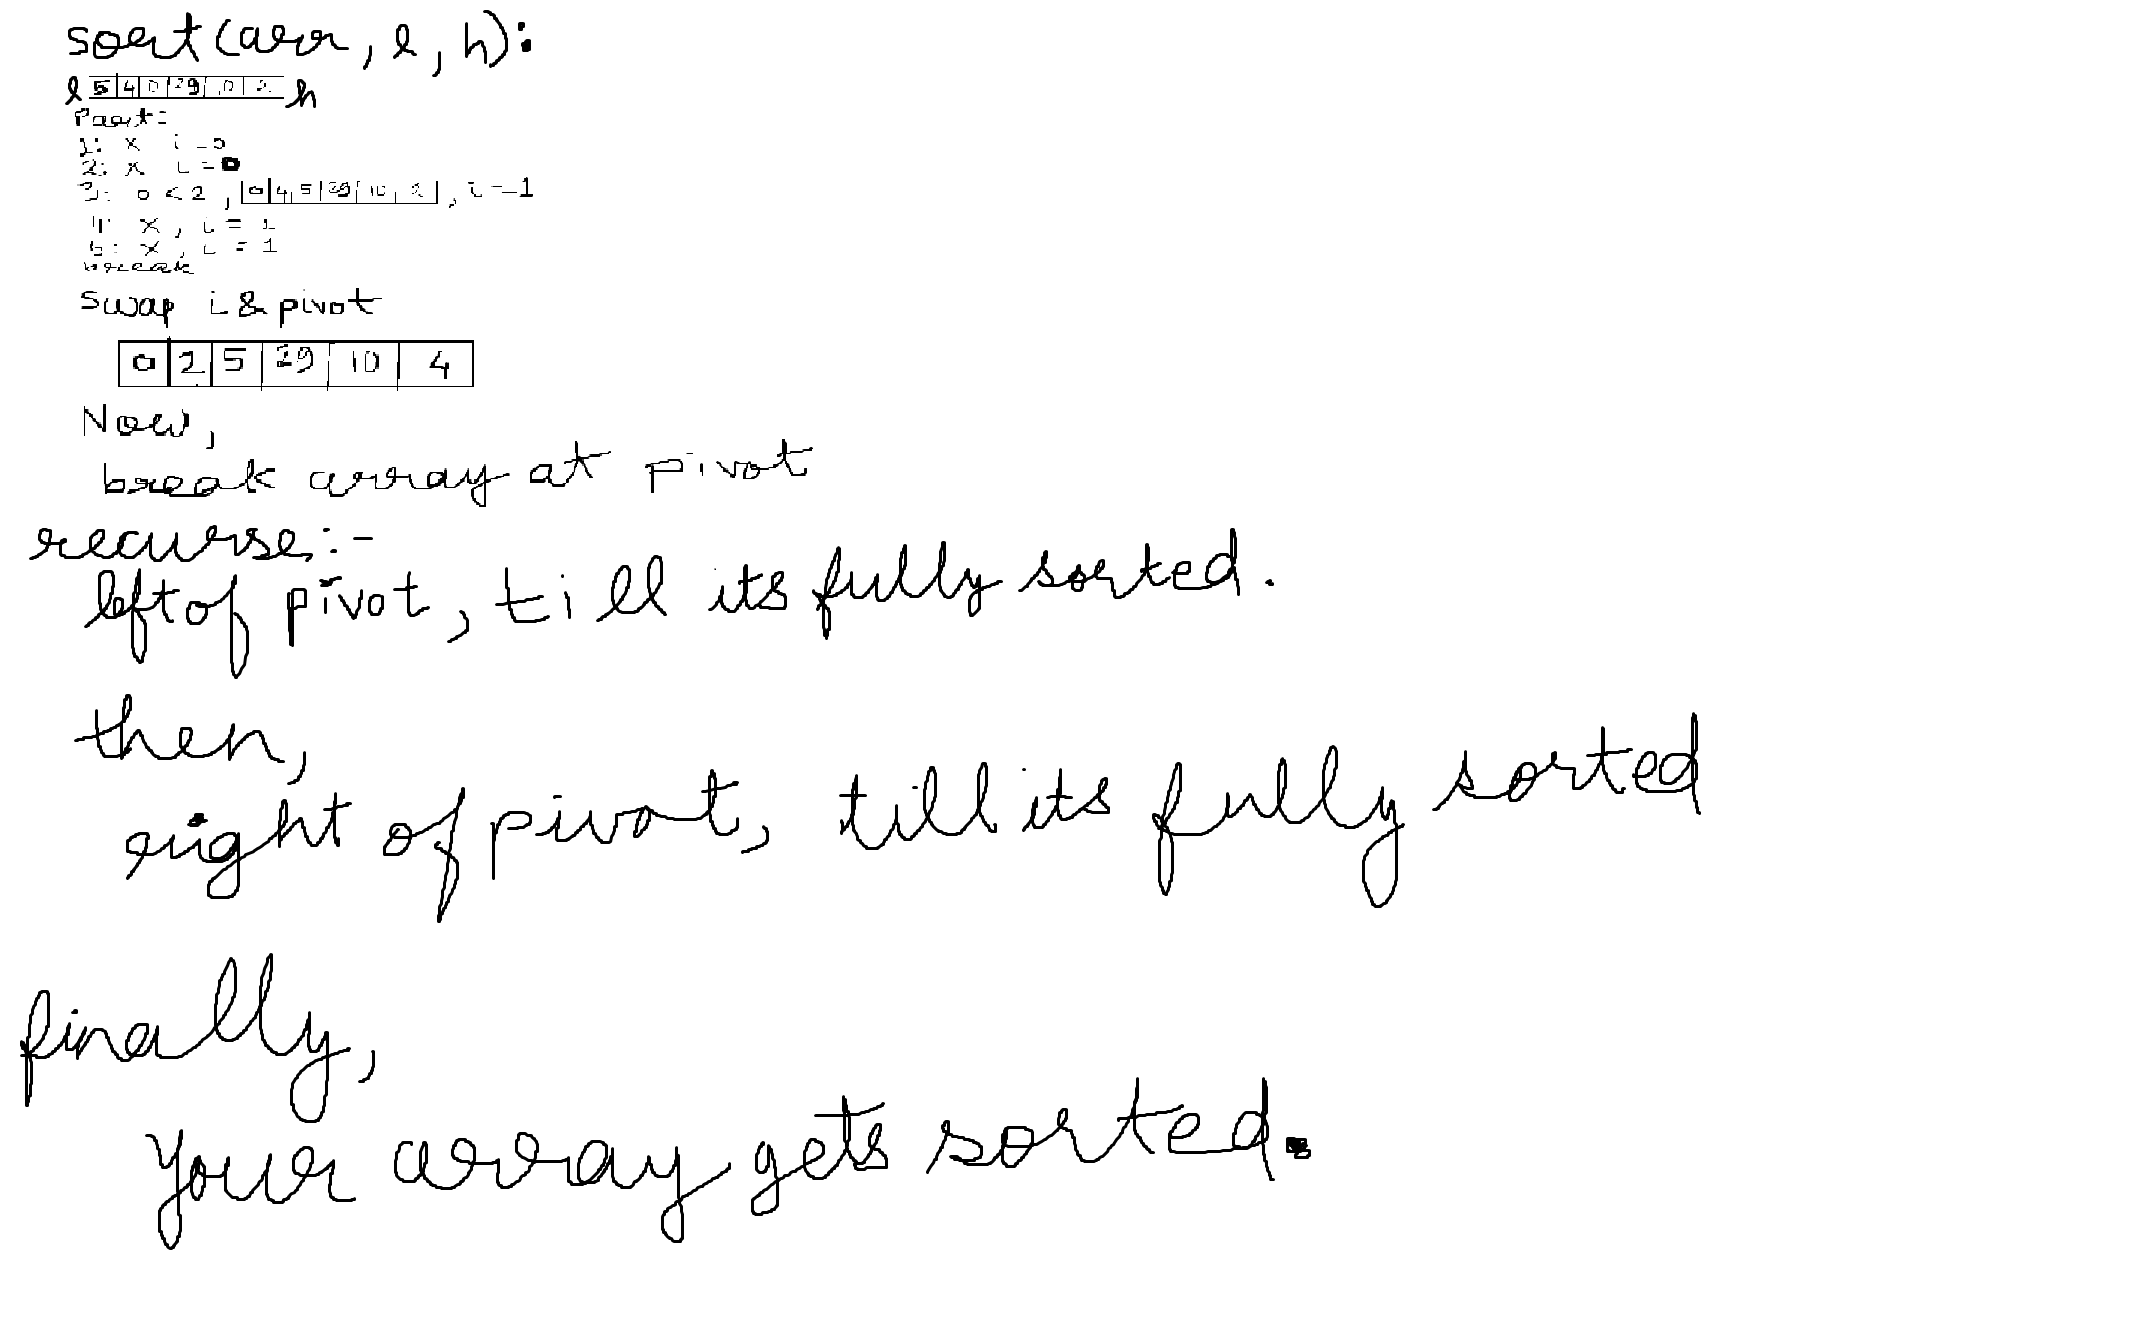 sort(arr, l, h):
l 5 4 0 29 10 2 h
Part:
1: x i = 0
2: x i = 0
3: 0 < 2 , 0 4 5 29 10 2 , i = 1
4: x , i = 1
5: x , i = 1
break
swap i & pivot
0 2 5 29 10 4
Now,
break array at pivot
recurse:-
left of pivot, till its fully sorted.
then,
right of pivot, till its fully sorted
finally,
Your array gets sorted.